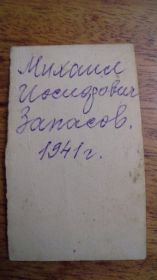 Михаил
Иосифович
Запасов.
1941 г.